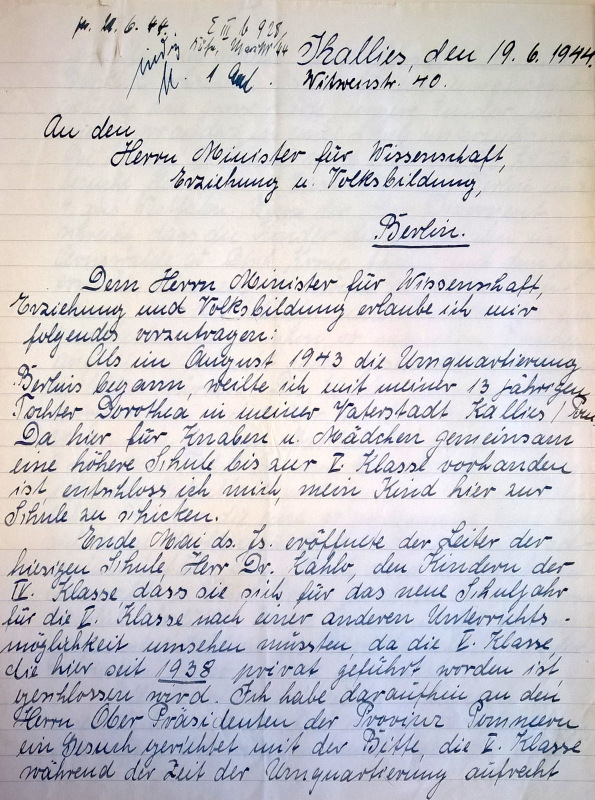 E III b 928
1 Anl.
Kallies, den 19.6.1944.
Witwenstr. 40.
An den
Herrn Minister für Wissenschaft,
Erziehung u. Volksbildung,
Berlin.
Dem Herrn Minister für Wissenschaft,
Erziehung und Volksbildung erlaube ich mir
folgendes vorzutragen:
Als im August 1943 die Umquartierung
Berlins begann, weilte ich mit meiner 13 jährigen
Tochter Dorothea in meiner Vaterstadt Kallies / Pom
Da hier für Knaben u. Mädchen gemeinsam
eine höhere Schule bis zur V. Klasse vorhanden
ist entschloss ich mich, mein Kind hier zur
Schule zu schicken.
Ende Mai ds. Js. eröffnete der Leiter der
hiesigen Schule, Herr Dr. Kahlo, den Kindern der
IV. Klasse, dass sie sich für das neue Schuljahr
für die V. Klasse nach einer anderen Unterrichts-
möglichkeit umsehen müssten, da die V. Klasse,
die hier seit 1938 privat geführt worden ist,
geschlossen wird. Ich habe daraufhin an den
Herrn Ober Präsidenten der Provinz Pommern
ein Gesuch gerichtet mit der Bitte, die V. Klasse
während der Zeit der Umquartierung aufrecht